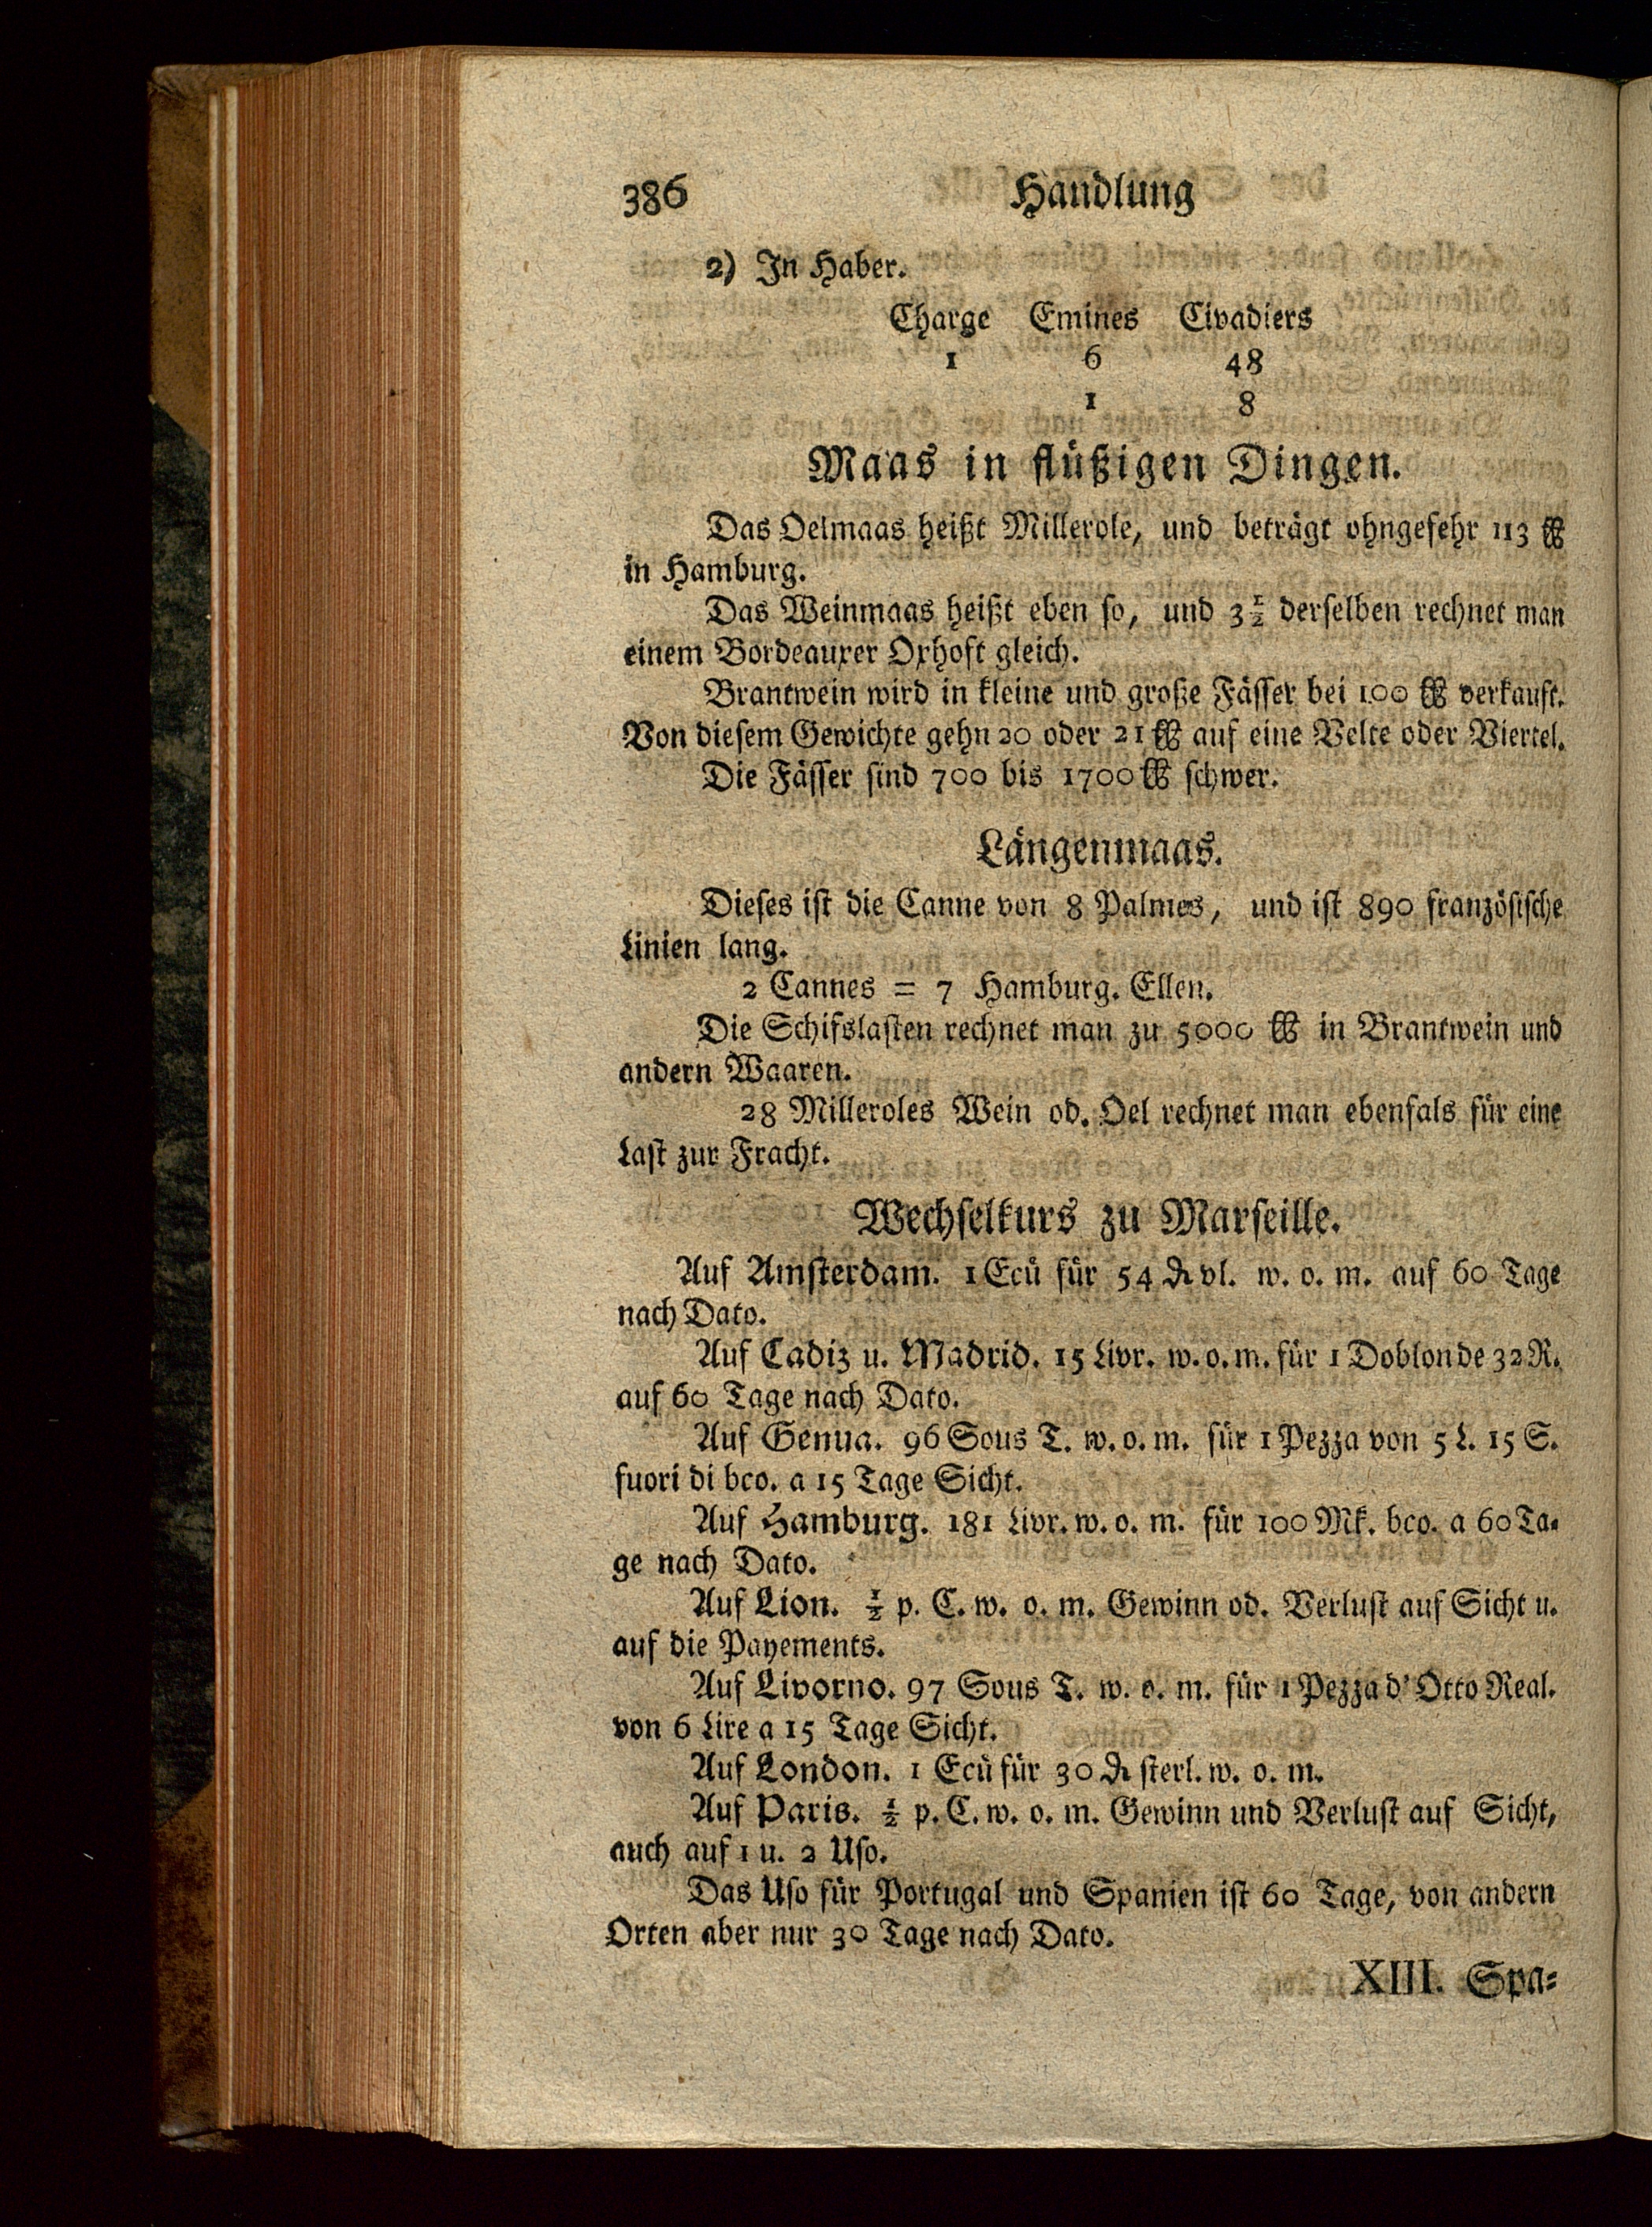 386 Handlung
2) In Haber.
Charge Emines Civadiers
1 6 48
1 8
Maas in flüßigen Dingen.
Das Oelmaas heißt Millerole, und beträgt ohngefehr 113 ℔
in Hamburg.
Das Weinmaas heißt eben so, und 3½ derselben rechnet man
einem Bordeauxer Oxhoft gleich.
Brantwein wird in kleine und große Fässer bei 100 ℔ verkauft.
Von diesem Gewichte gehn 20 oder 21 ℔ auf eine Velte oder Viertel.
Die Fässer sind 700 bis 1700 ℔ schwer.
Längenmaas.
Dieses ist die Canne von 8 Palmes, und ist 890 französische
Linien lang.
2 Cannes = 7 Hamburg. Ellen.
Die Schifslasten rechnet man zu 5000 ℔ in Brantwein und
andern Waaren.
28 Milleroles Wein od. Oel rechnet man ebenfals für eine
Last zur Fracht.
Wechselkurs zu Marseille.
Auf Amsterdam. 1 Ecü für 54 ₰ vl. w. o. m. auf 60 Tage
nach Dato.
Auf Cadiz u. Madrid. 15 Livr. w. o. m. für 1 Doblon de 32 R.
auf 60 Tage nach Dato.
Auf Genua. 96 Sous T. w. o. m. für 1 Pezza von 5 L. 15 S.
fuori di bco. a 15 Tage Sicht.
Auf Hamburg. 181 Livr. w. o. m. für 100 Mk. bco. a 60 Ta-
ge nach Dato.
Auf Lion. ½ p. C. w. o. m. Gewinn od. Verlust auf Sicht u.
auf die Payements.
Auf Livorno. 97 Sous T. w. o. m. für 1 Pezza d' Otto Real.
von 6 Lire a 15 Tage Sicht.
Auf London. 1 Ecü für 30 ₰ sterl. w. o. m.
Auf Paris. ½ p. C. w. o. m. Gewinn und Verlust auf Sicht,
auch auf 1 u. 2 Uso.
Das Uso für Portugal und Spanien ist 60 Tage, von andern
Orten aber nur 30 Tage nach Dato.
XIII. Spa-